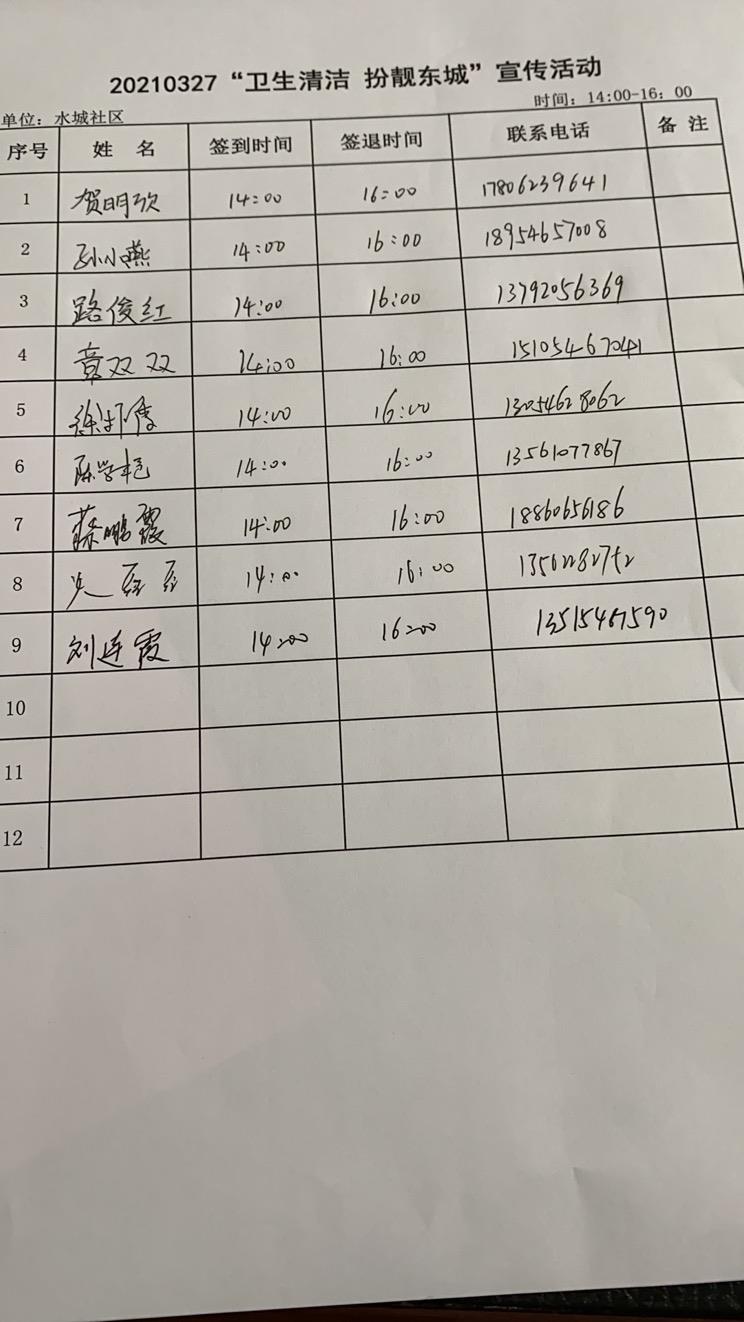 20210327“卫生清洁 扮靓东城”宣传活动
单位：水城社区 时间：14:00-16：00
序号 姓 名 签到时间 签退时间 联系电话 备 注
1 贺明欣 14:00 16:00 17806239641
2 孙小燕 14:00 16:00 18954657008
3 路俊红 14:00 16:00 13792056369
4 章双双 14:00 16:00 15105467041
5 14:00 16:00 13054628062
6 陈学艳 14:00 16:00 13561077867
7 14:00 16:00 18860656186
8 14:00 16:00
9 刘连霞 14:00 16:00 13515467590
10
11
12